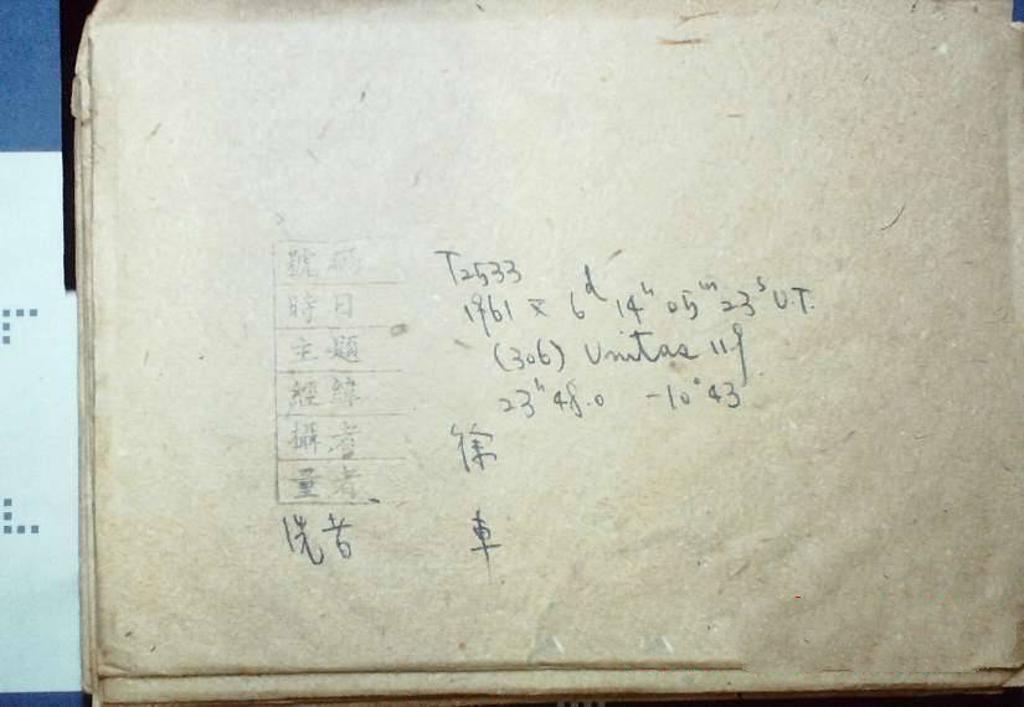 號碼 T2533
時日 1961 X 6ᵈ 14ʰ 05ᵐ 23ˢ U.T.
主題 (306) Unitas 11
經緯 23ʰ 48.0 -10°43'
攝者 徐
量者
洗者 車